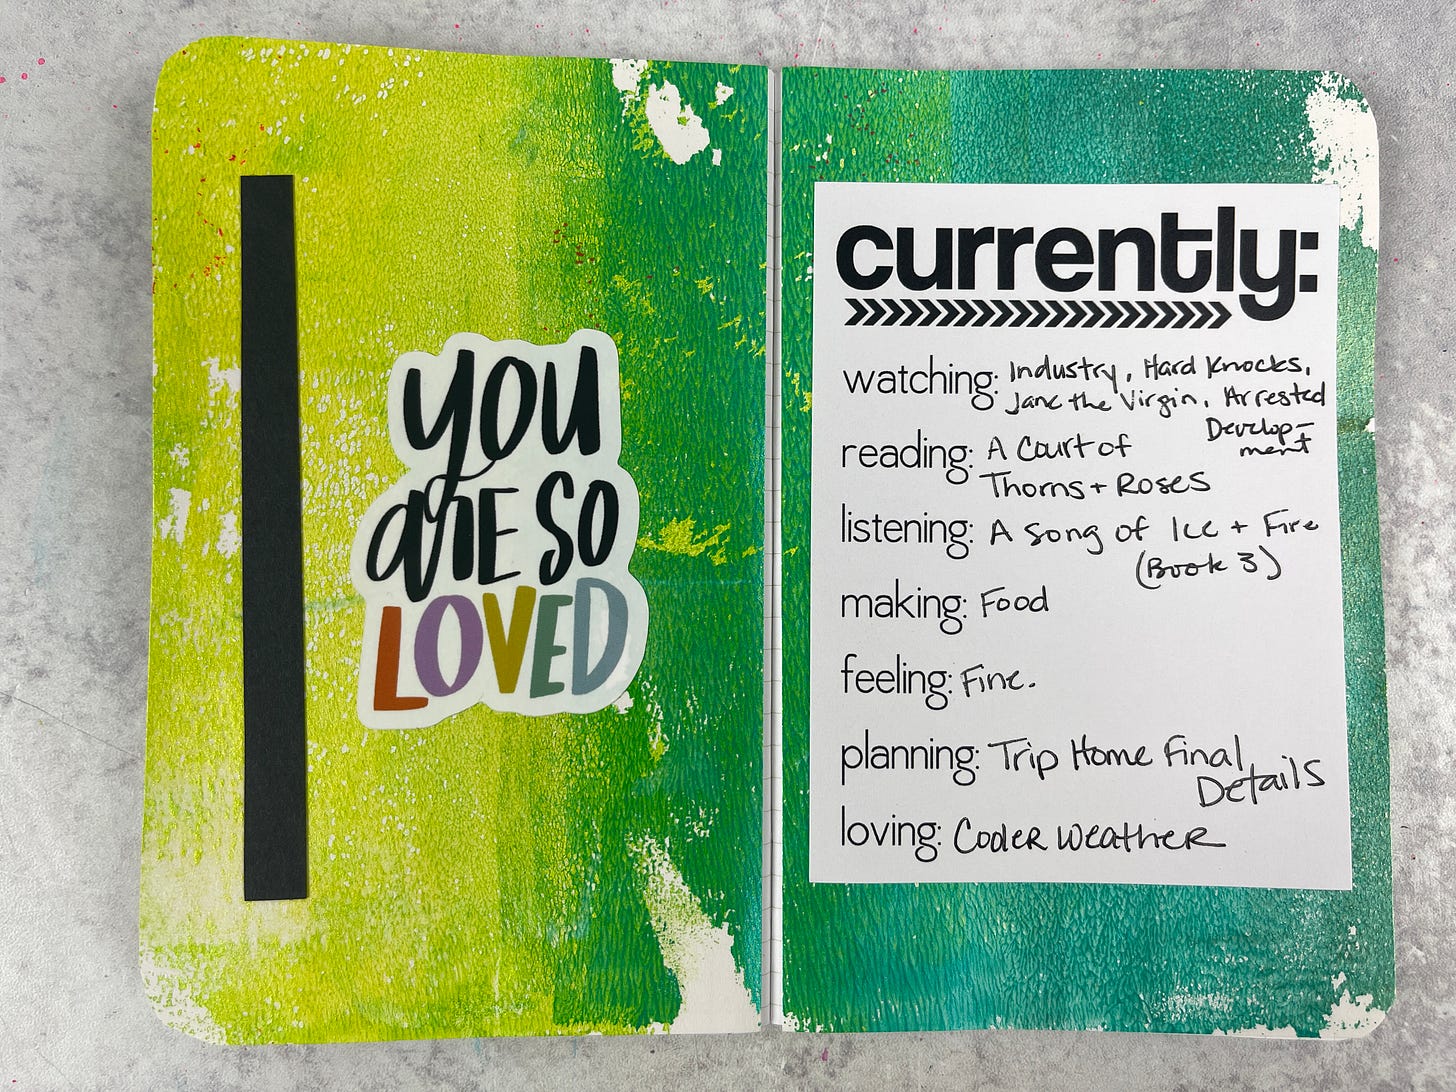 YOU
ARE SO
LOVED
currently:
watching: Industry, Hard Knocks,
Jane the Virgin, Arrested
Develop-
ment
reading: A Court of
Thorns + Roses
listening: A Song of Ice + Fire
(Book 3)
making: Food
feeling: Fine.
planning: Trip Home Final
Details
loving: Cooler Weather